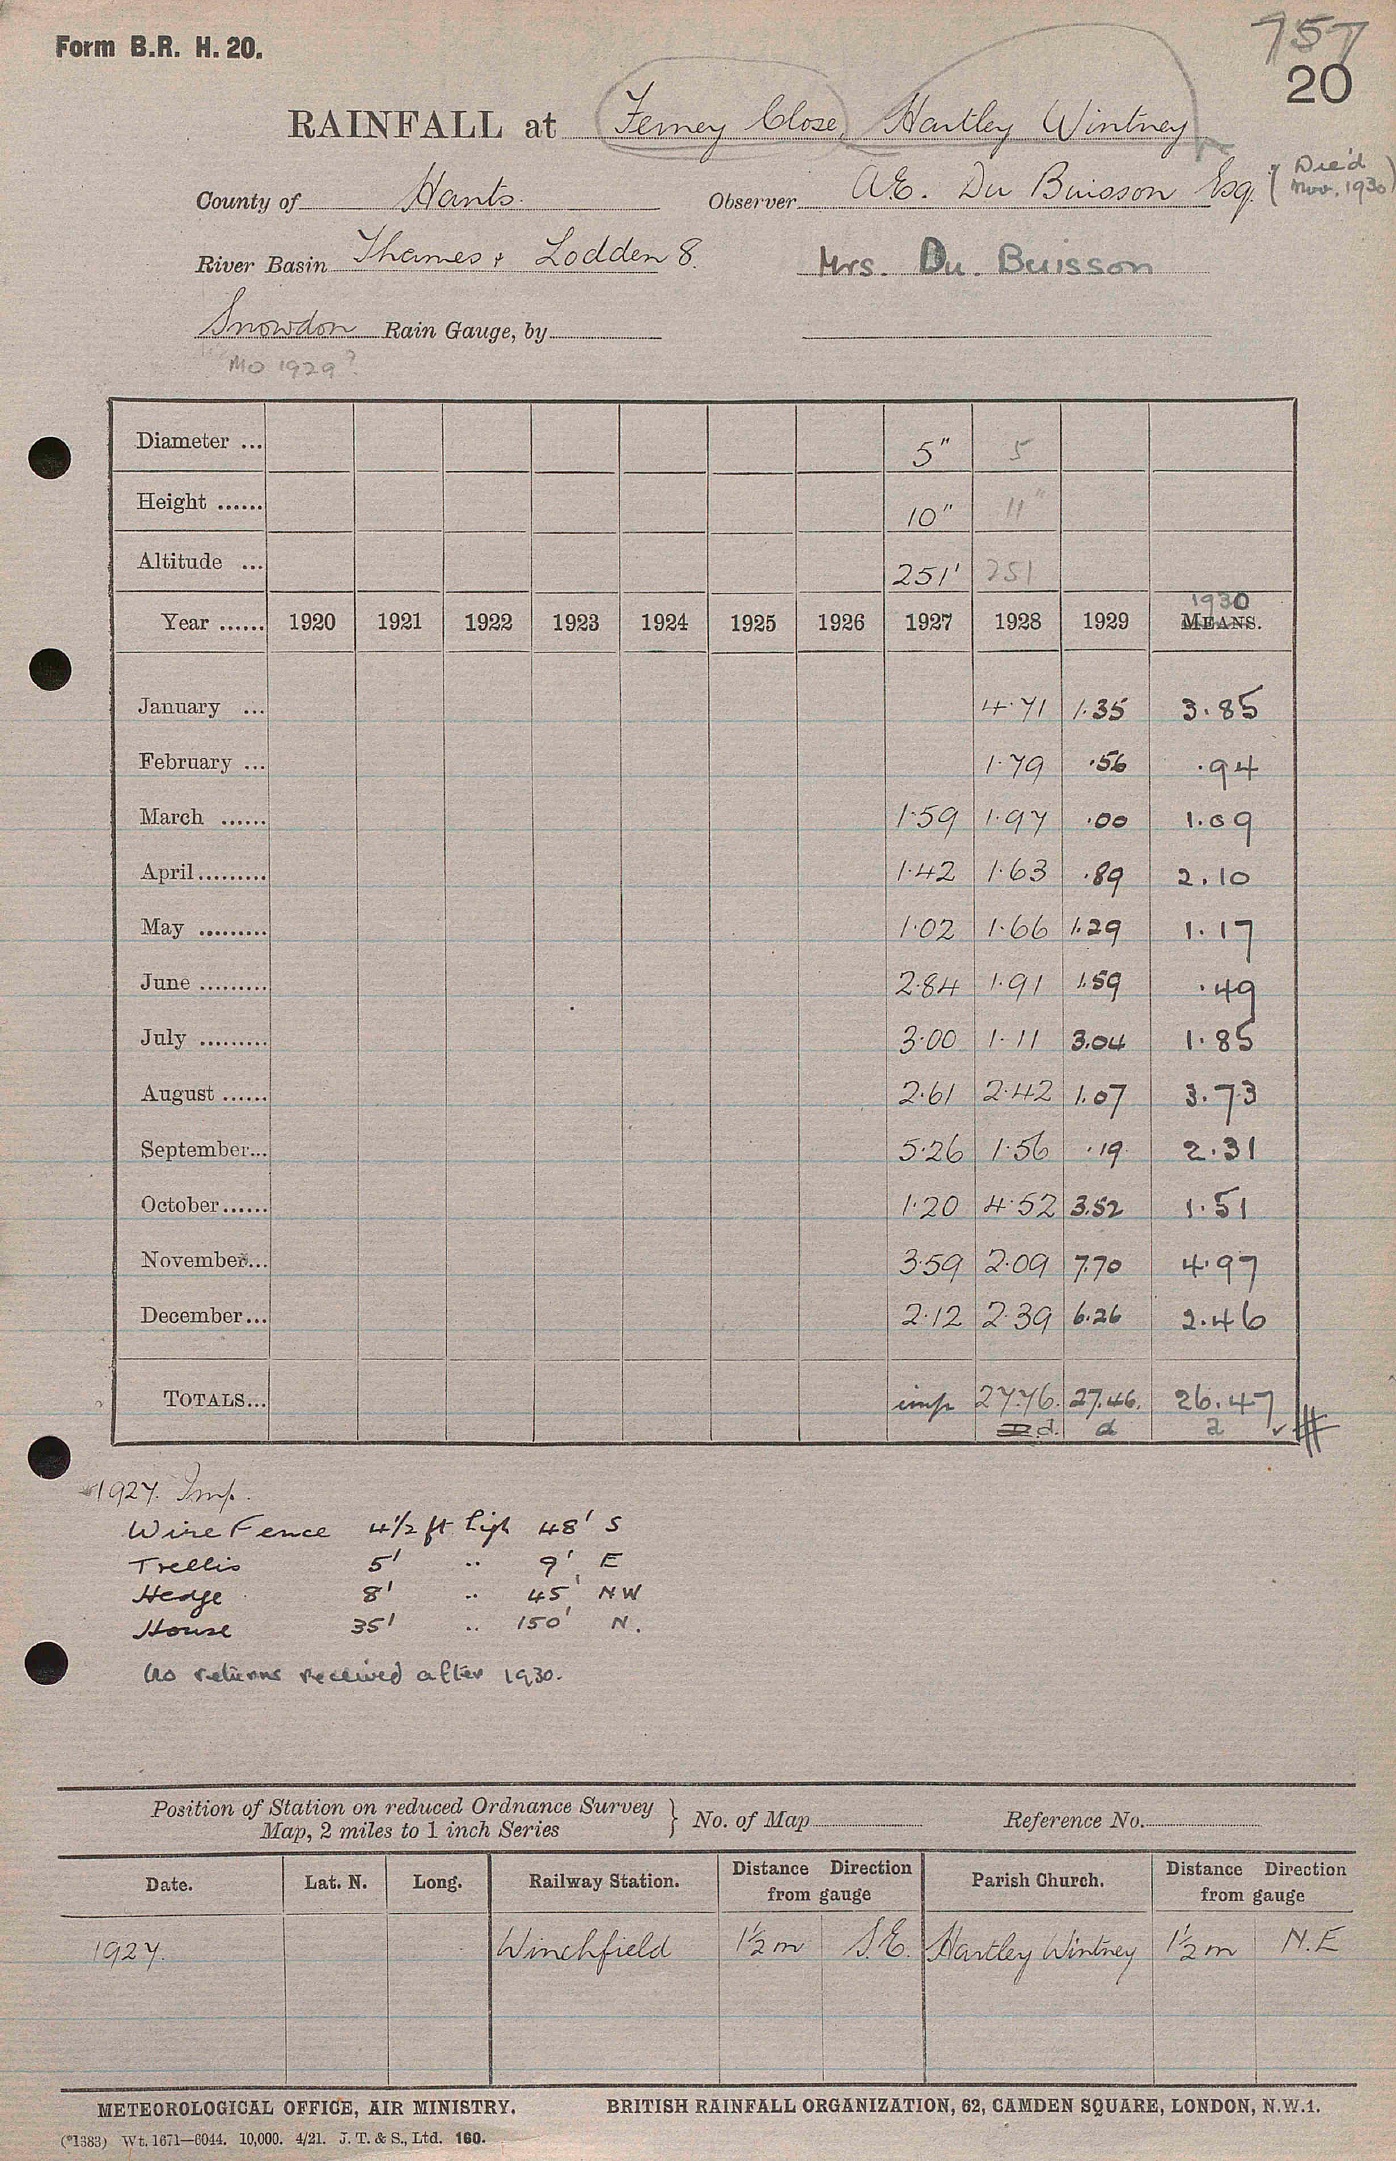 757
Form B.R. H. 20.
20
RAINFALL at Ferney Close, Hartley Wintney
County of Hants. Observer A.E. Du Buisson Esq. (Died Nov. 1930)
River Basin Thames & Lodden 8. Mrs. Du. Buisson
Snowdon Rain Gauge, by
MO 1929?
Diameter ... 5" 5
Height ...... 10" 11"
Altitude ... 251' 251
1930
Year ...... 1920 1921 1922 1923 1924 1925 1926 1927 1928 1929 MEANS.
January ... 4.71 1.35 3.85
February ... 1.79 .56 .94
March ...... 1.59 1.97 .00 1.09
April ......... 1.42 1.63 .89 2.10
May ......... 1.02 1.66 1.29 1.17
June ......... 2.84 1.91 1.59 .49
July ......... 3.00 1.11 3.04 1.85
August ...... 2.61 2.42 1.07 3.73
September... 5.26 1.56 .19 2.31
October...... 1.20 4.52 3.52 1.51
November... 3.59 2.09 7.70 4.97
December... 2.12 2.39 6.26 2.46
TOTALS... imp 27.76. 27.46. 26.47
d. d a
1927. Imp.
Wire Fence 4½ ft high 48' S
Trellis 5' " 9' E
Hedge 8' " 45' NW
House 35' " 150' N.
No returns received after 1930.
Position of Station on reduced Ordnance Survey Map, 2 miles to 1 inch Series } No. of Map Reference No.
Date. Lat. N. Long. Railway Station. Distance Direction from gauge Parish Church. Distance Direction from gauge
1927. Winchfield 1½ m S.E. Hartley Wintney 1½ m N.E
METEOROLOGICAL OFFICE, AIR MINISTRY. BRITISH RAINFALL ORGANIZATION, 62, CAMDEN SQUARE, LONDON, N.W.1.
(*1383) Wt. 1671—6044. 10,000. 4/21. J. T. & S., Ltd. 160.